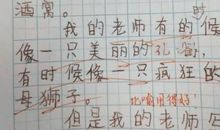 酒窝。
我的老师有的时候
像一只美丽的孔雀，
有时候像一只疯狂的
母狮子。比喻用得好！
但是我的老师